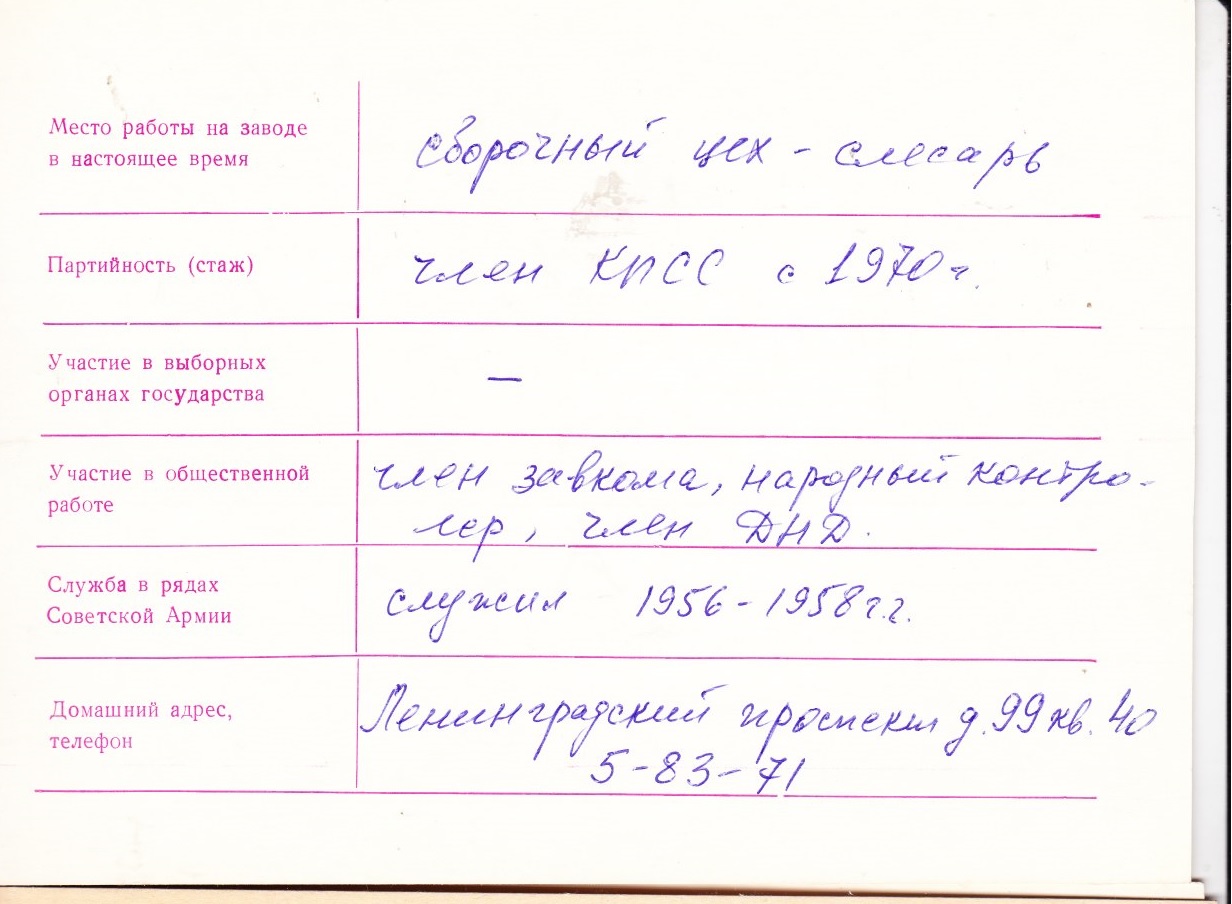 Место работы на заводе
в настоящее время
сборочный цех - слесарь
Партийность (стаж)
член КПСС с 1970 г.
Участие в выборных
органах государства
—
Участие в общественной
работе
член завкома, народный контро-
лер, член ДНД.
Служба в рядах
Советской Армии
служил 1956 - 1958 г.г.
Домашний адрес,
телефон
Ленинградский проспект д. 99 кв. 40
5-83-71